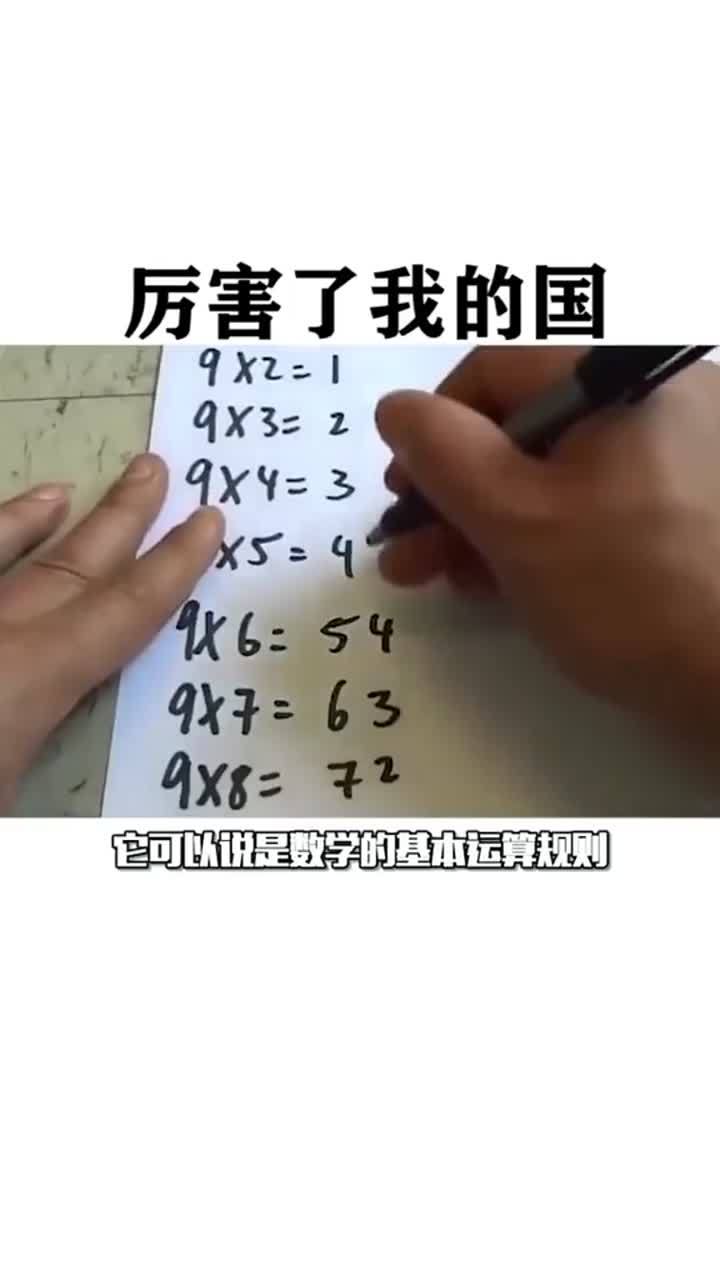 厉害了我的国
9×2=1
9×3=2
9×4=3
×5=4
9×6=54
9×7=63
9×8=72
它可以说是数学的基本运算规则